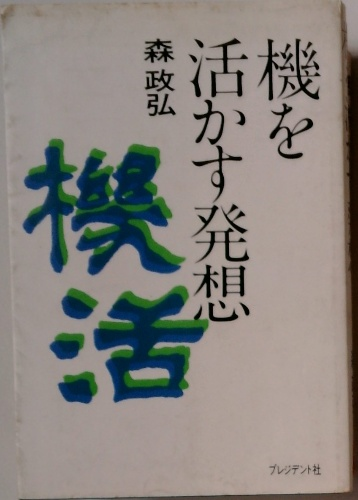 機を
活かす発想
森 政弘
機
活
プレジデント社